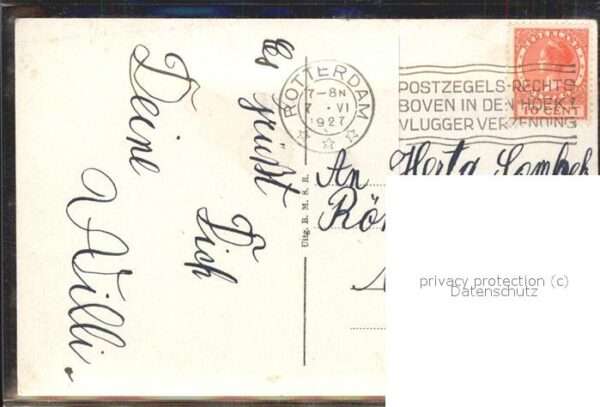 Es grüßt
Dich
Deine
Willi.
Uitg. R. M. S. R.
ROTTERDAM
7-8N
7 . VI
1927
POSTZEGELS-RECHTS
BOVEN IN DEN HOEK=
VLUGGER VERZENDING
NEDERLAND
10 CENT
An Herta
privacy protection (c)
Datenschutz